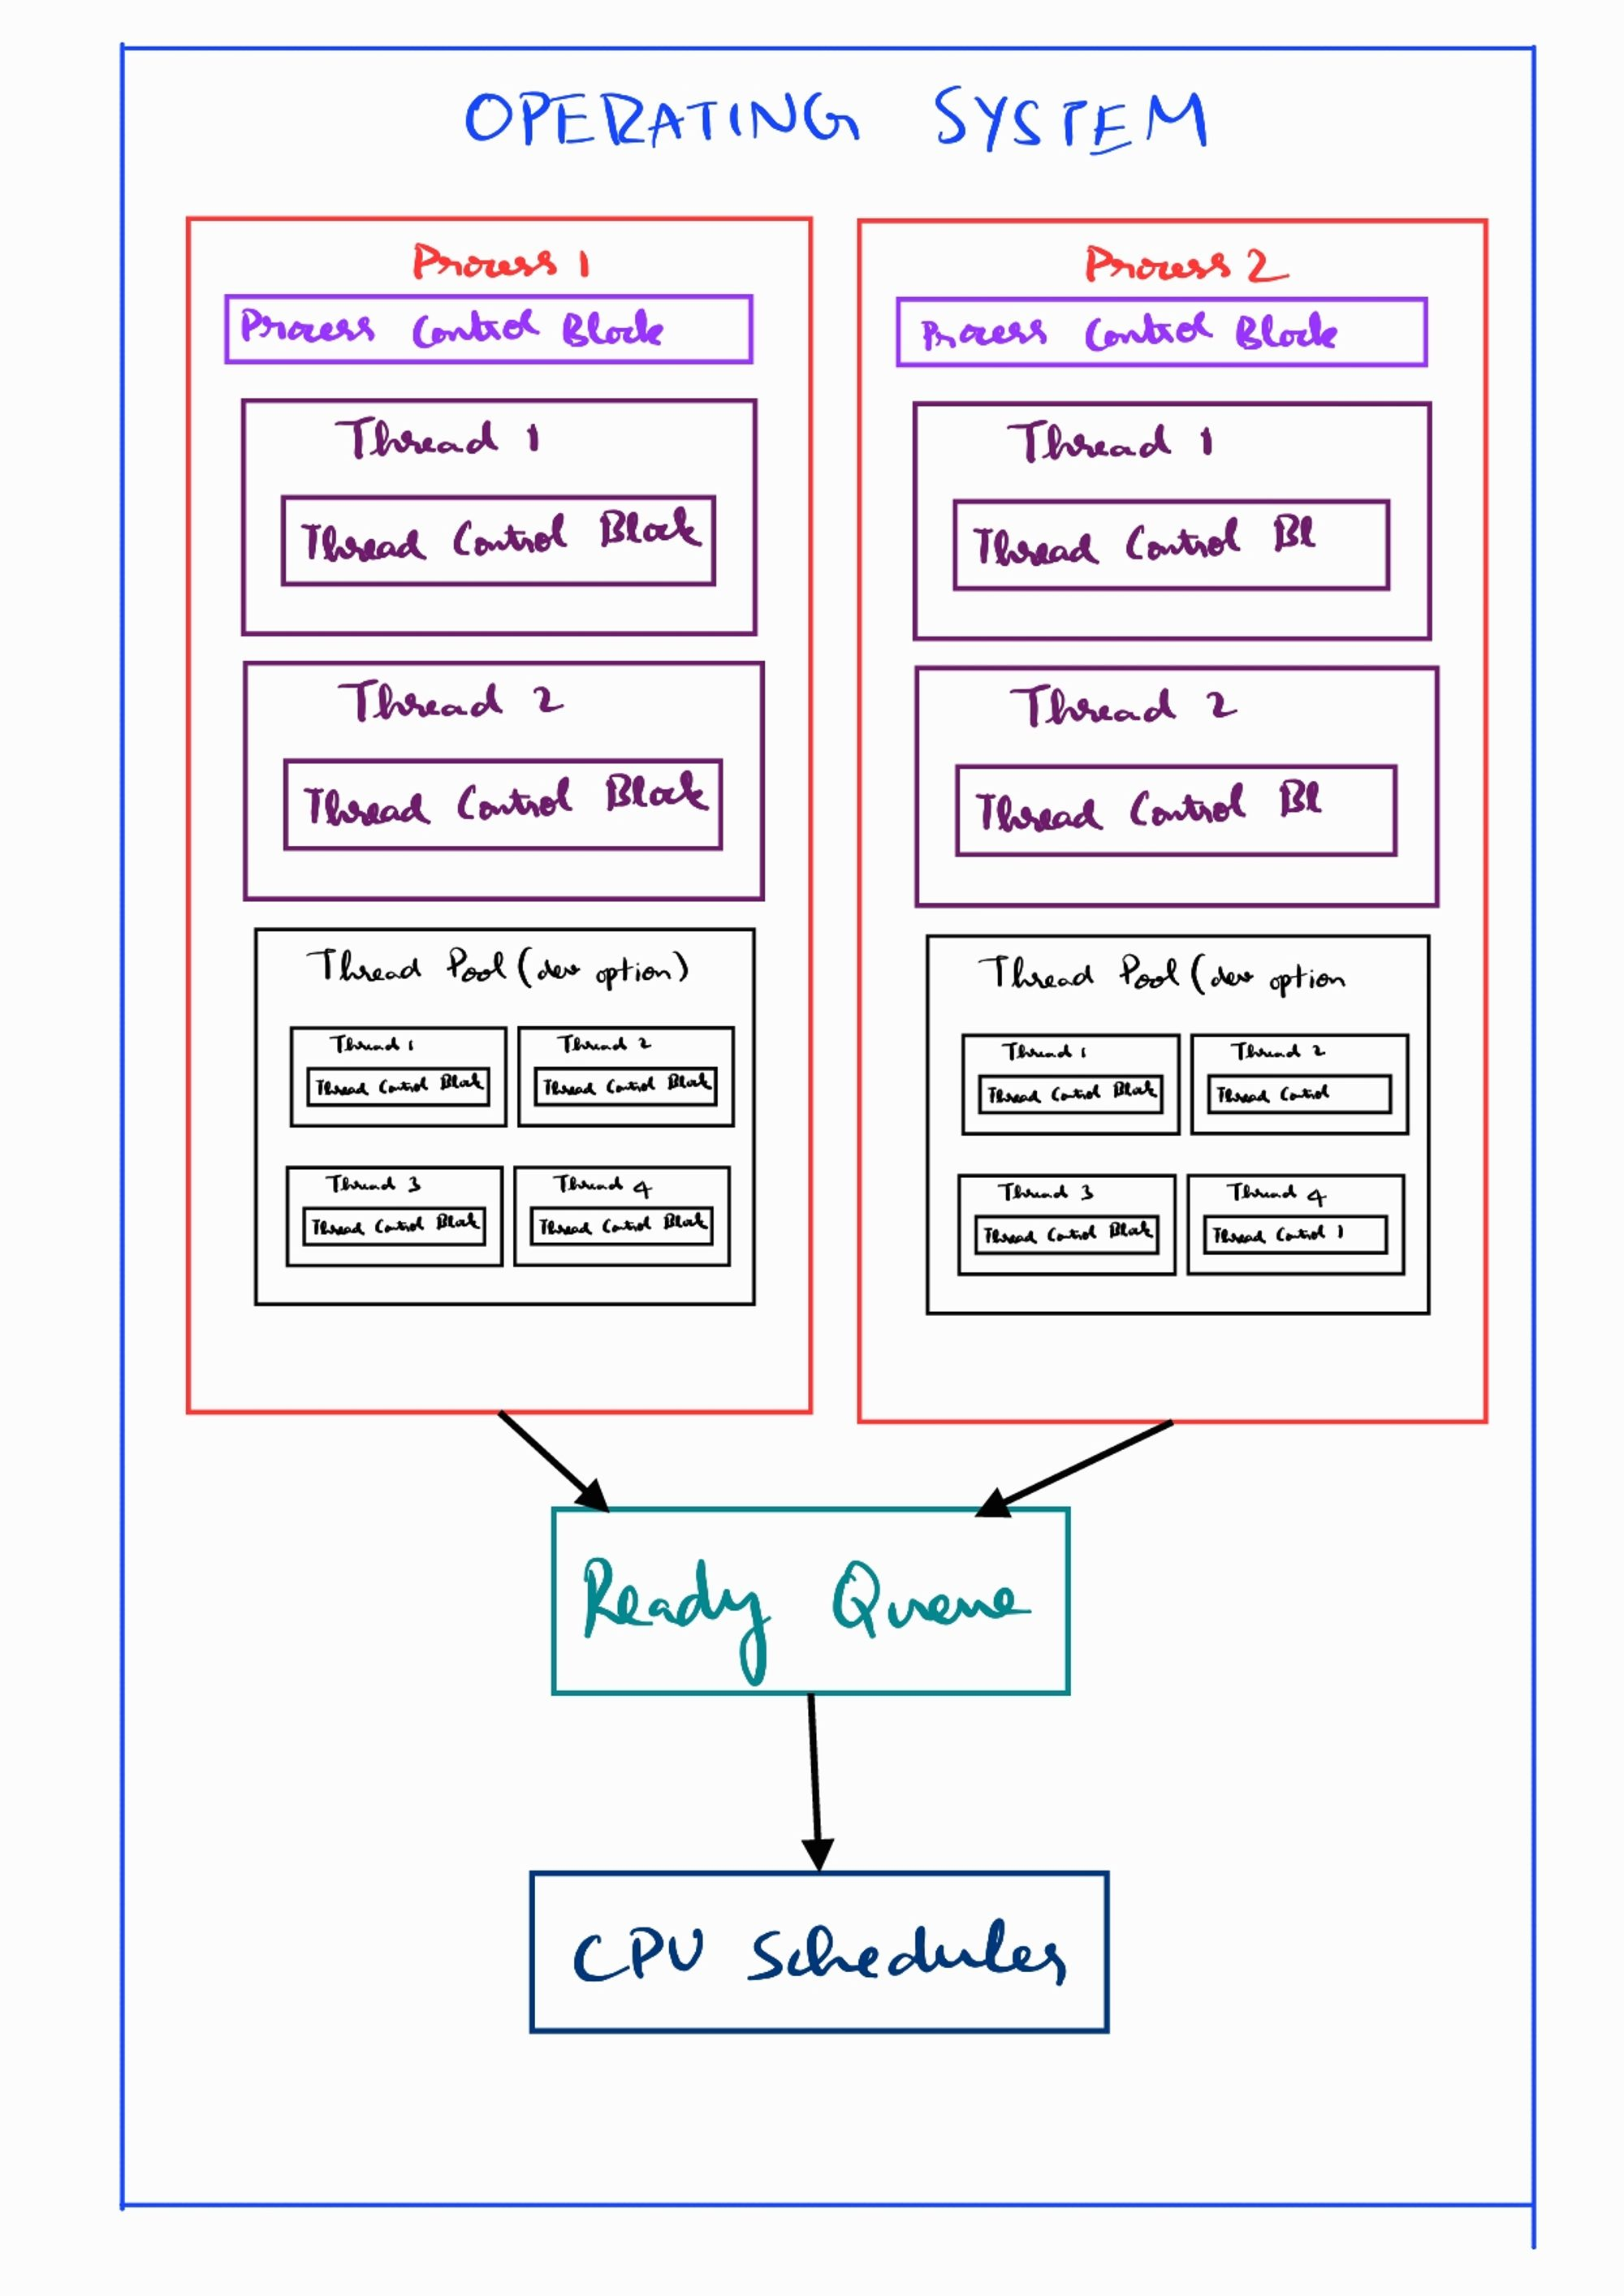 OPERATING SYSTEM
Process 1
Process Control Block
Thread 1
Thread Control Block
Thread 2
Thread Control Block
Thread Pool (dev option)
Thread 1
Thread Control Block
Thread 2
Thread Control Block
Thread 3
Thread Control Block
Thread 4
Thread Control Block
Process 2
Process Control Block
Thread 1
Thread Control Bl
Thread 2
Thread Control Bl
Thread Pool (dev option
Thread 1
Thread Control Block
Thread 2
Thread Control
Thread 3
Thread Control Block
Thread 4
Thread Control 1
Ready Queue
CPU Scheduler